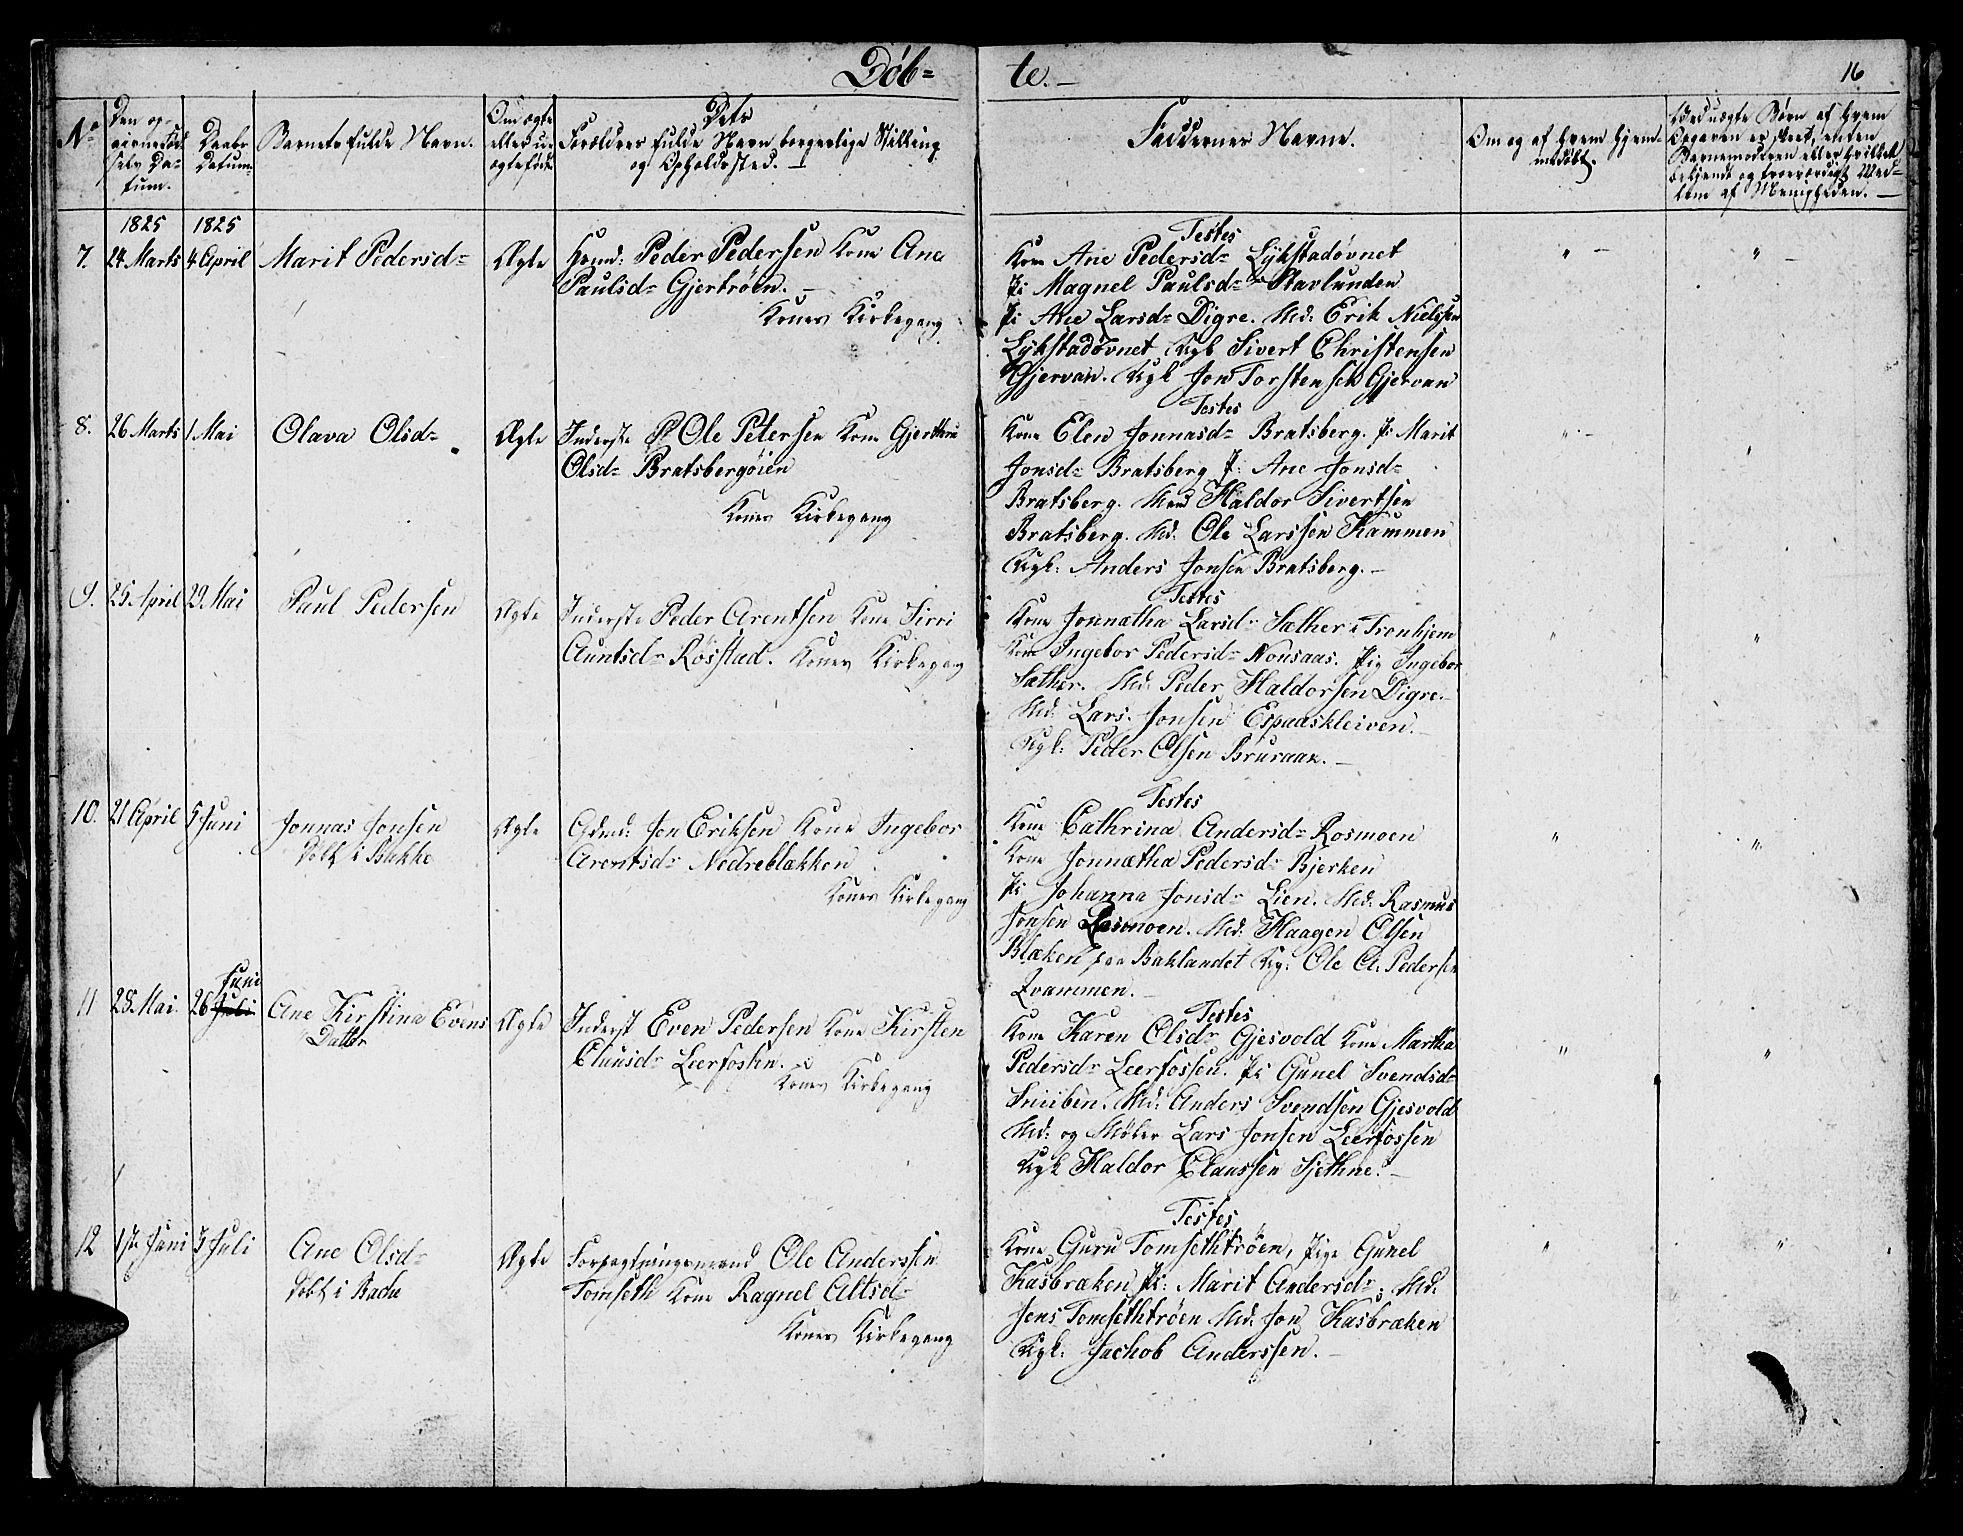 Døb=
te.—
16
No
Den op-
givne fød
selv Da-
tum.
Daabs
Datum
Barnets fulde Navn.
Om ægte
eller u-
ægte født
Dets
Forældres fulde Navn borgerlige Stilling
og Opholdssted. —
Faddernes Navne.
Om og af hvem hjem-
medøbt.
Ved uægte Børn af hvem
Opgaven er skeet, enten
Barnemoderen eller hvilket
bekjendt og troeværdigt Med-
lem af Menigheden. —
1825 1825
7. 24 Marts 4 April Marit Pedersd= Ægte Huusd: Peder Pedersen Kone Ane
Paulsd= Gjertrøen. —
Konens Kirkegang
Testes
Kone Ane Pedersd= Lykstadøvnet
Pi Magnel Paulsd= Stavlunden
Pi Ane Larsd= Digre. Md: Erik Nielssen
Lykstadøvnet Ugk Sivert Christensen
Gjervan. Ugk Jon Torstensen Gjervan
" — " —
8. 26 Marts 1 Mai Olava Olsd= Ægte Inderste Ole Petersen Kone Gjerthru
Olsd= Bratsbergøien
Konens Kirkegang
Testes
Kone Elen Jonnasd= Bratsberg. Pi Marit
Jonsd= Bratsberg P: Ane Jonsd=
Bratsberg. Mand Haldor Sivertsen
Bratsberg. Md: Ole Larssen Kammen
Ugk: Anders Jonsen Bratsberg. —
" — "
9. 25 April 29 Mai Paul Pedersen Ægte Inderste Peder Arentsen Kone Sirri
Auntsd= Røsstad. Konens Kirkegang
Testes
Kone Jonnatha Larsd= Sæther i Tronhjem
Kone Ingebor Pedersd= Nonsaas. Pig Ingebor
Sæther. Md: Peder Haldorsen Digre.
Md: Lars Jonsen Espaaskleiven. —
Ugk: Peder Olsen Bruraak. —
" "
10. 21 April 5 Juni Jonnas Jonsen Ægte Gdmd: Jon Eriksen Kone Ingebor
Døbt i Bakke
Arentsd= Nedreblækken
Konens Kirkegang
Testes
Kone Cathrina Andersd= Rosmoen
Kone Jonnætha Pedersd= Bjerken
Pi Johanna Jonsd= Lien. Md: Rasmus
Jonsen Rosmoen. Md: Haagen Olsen
Blæken paa Baklandet Ug: Ole A. Pedersen
Qvammen. —
" "
11 28 Mai. 26 Juli Juni Ane Kirstina Evens Ægte Inderst Even Pedersen Kone Kirsten
Datter
Clausd= Leerfossen.
Konens Kirkegang
Testes
Kone Karen Olsd= Gjesvold Kone Martha
Pedersd= Leerfossen. Pi Gunel Svendsd=
Md: Anders Svendsen Gjesvold
Md: og Møler Lars Jonsen Leerfossen
Ugk Haldor Claussen Sjethne. —
" "
12 1ste Juni 3 Juli Ane Olsd= Ægte Forpagtningsmand Ole Anderssen
Døbt i Bache
Tomseth Kone Ragnel Altsd=
Konens Kirkegang
Testes
Kone Guru Tomsethtrøen, Pige Gunel
Kasbraken Pi: Marit Andersd=; Md:
Jens Tomsethtrøen Md: Jon Kasbræken
Ugk: Jachob Anderssen. —
" "